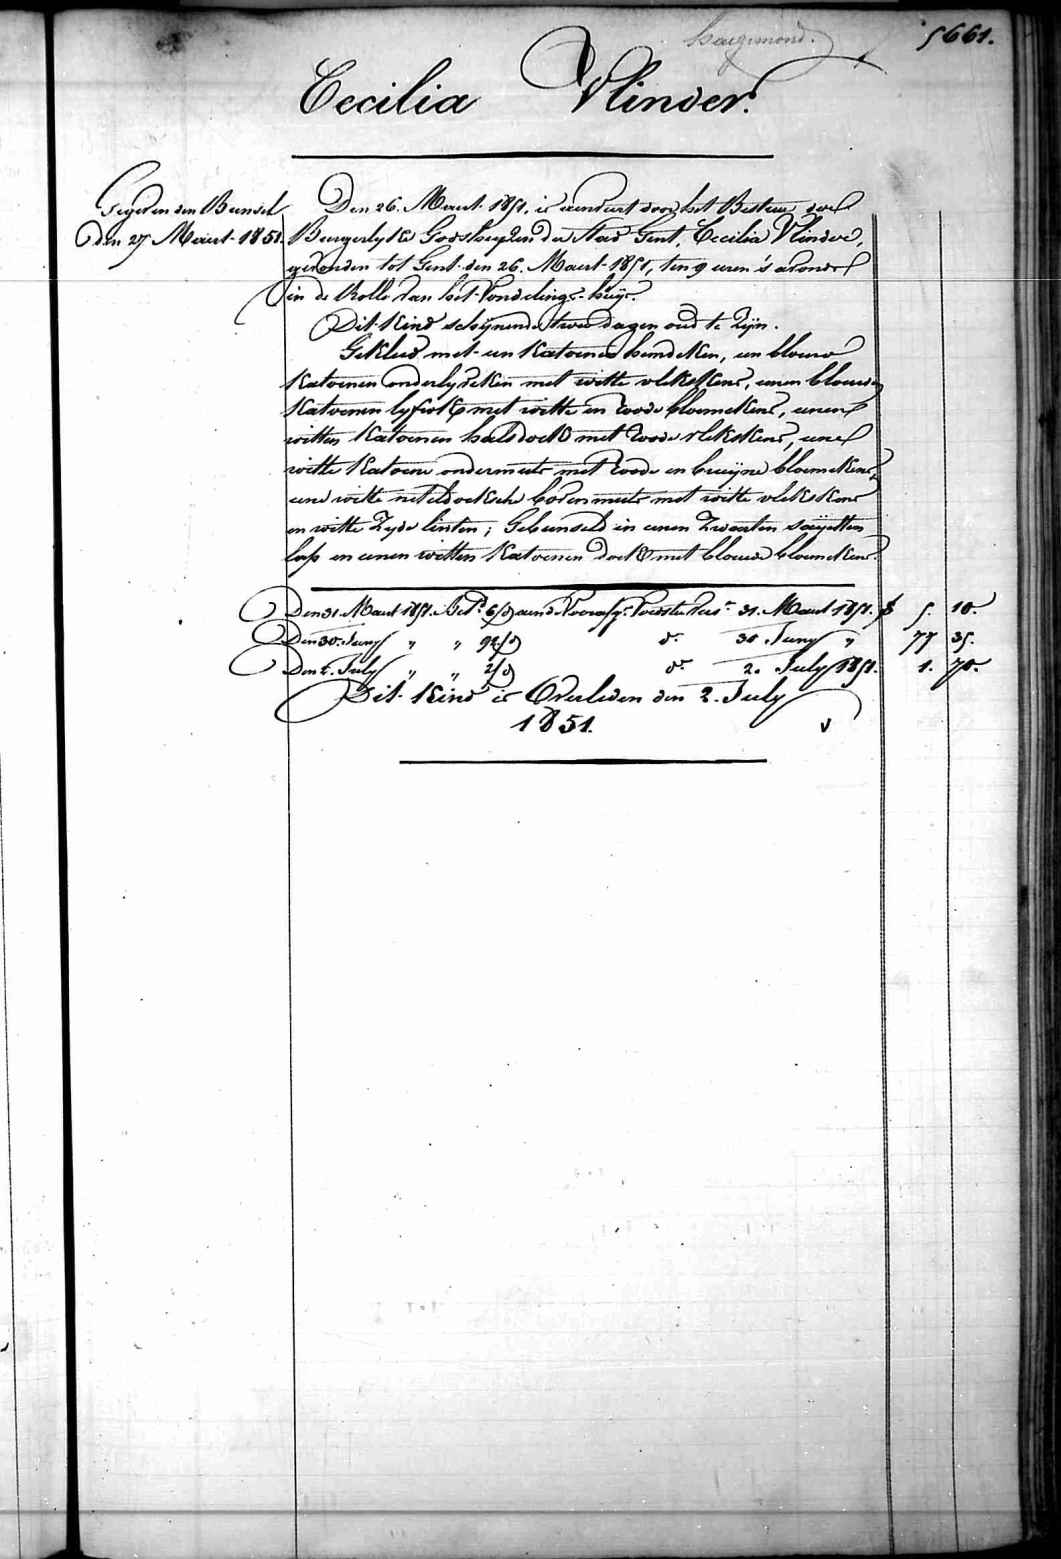 5661.
Cecilia Vlinder.
Gegeven den Bunsel
den 27 Maart 1851.
Den 26. Maart 1851, is aenveert door het Bestuer der
Burgerlyke Godshuyzen der Stad Gent, Cecilia Vlinder,
gevonden tot Gent den 26. Maart 1851, ten 9 uren 's avonds
in de Rolle van het Vondelings-huys.
Dit Kind schynende twee dagen oud te zyn.
Gekleed met een katoenen hemdeken, een blouw
katoenen onderlyfveken met witte vlekskens, eenen blouwen
katoenen lyfrok met witte en roode bloemekens, eenen
witten katoenen halsdoek met roode vlekskens, eene
witte katoene ondermuts met roode en bruyne bloemekens,
eene witte neteldoeksche bovenmuts met witte vlekskens
en witte zyde linten; Gebunseld in eenen zwarten sayetten
lap en eenen witten katoenen doek met blouwe bloemekens.
Den 31. Maart 1851. Bet. 6/d aen de Voorsz. Voedster tot 31. Maart 1851. f 5. 10.
Den 30. Juny " " 92/d do 30 Juny " 77 35.
Den 2. July " " 2/d do 2. July 1851. 1. 70.
Dit Kind is Overleden den 2. July
1851.